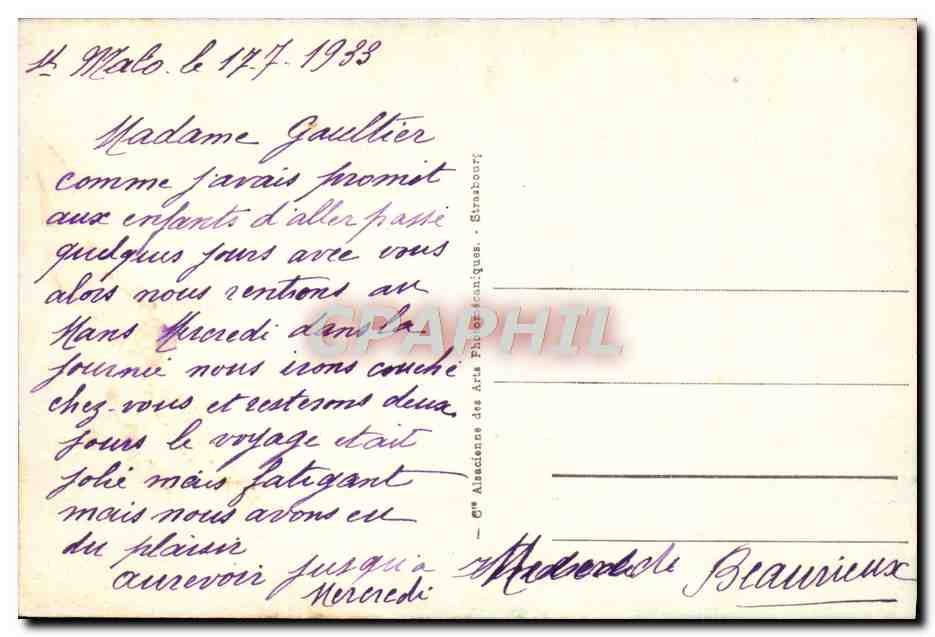 St Malo. le 17.7.1933
Madame Gaultier
comme j'avais promit
aux enfants d'aller passé
quelques jours avec vous
alors nous rentrons au
Mans Mercredi dans la
journée nous irons couché
chez-vous et resterons deux
jours le voyage etait
jolie mais fatigant
mais nous avons eu
du plaisir
aurevoir jusqu'a
Mercredi
de Beaurieux
— Cie Alsacienne des Arts Photomécaniques. - Strasbourg
CPAPHIL